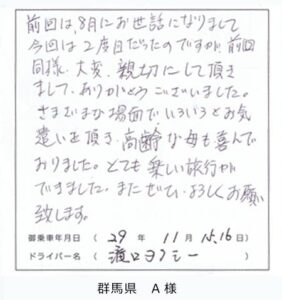 前回は、8月にお世話になりまして
今回は2度目だったのですが、前回
同様、大変、親切にして頂き
まして、ありがとうございました。
さまざまな場面で、いろいろとお気
遣いを頂き、高齢な母も喜んで
おりました。とても楽しい旅行が
できました。またぜひ、よろしくお願い
致します。
御乗車年月日 ( 29年 11月 15,16日 )
ドライバー名 ( 滝口タクシー )
群馬県 A様